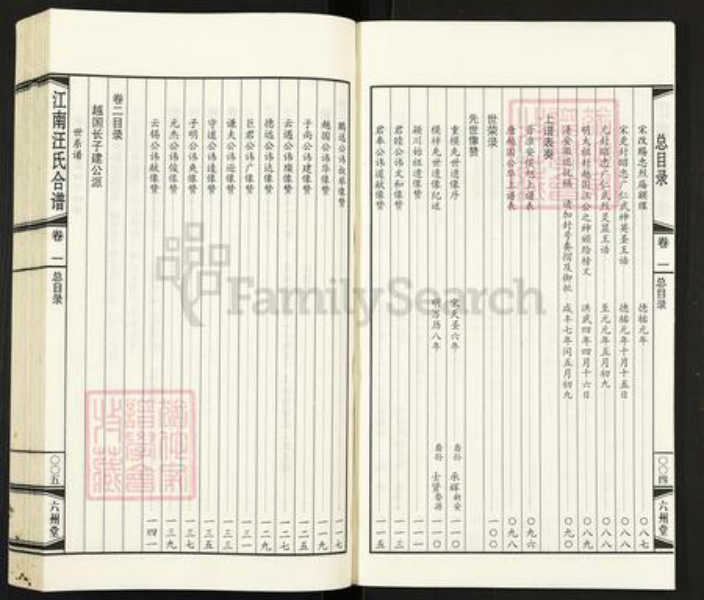 总目录
卷一
总目录
〇〇四
六州堂
宋改赐忠烈庙额牒 德祐元年 〇八七
宋更封昭忠广仁武神英圣王诰 德祐元年十月十五日 〇八八
元封昭忠广仁武烈灵显王诰 至元元年五月初九 〇八八
明太祖封越国汪公之神颁给榜文 洪武四年四月十六日 〇八九
清安徽巡抚杨 请加封号奏摺及御批 咸丰七年闰五月初九 〇九〇
上谱表奏
晋淮安侯旭上谱表 〇九六
唐越国公华上谱表 〇九八
世荣录 一〇〇
先世像赞
重模先世遗像序 宋天圣六年 裔孙 承晖
模梓先世遗像纪述 明万历八年 裔孙 士贤 一一〇
颍川始祖遗像赞 一一一
君睦公讳文和像赞 一一三
君奉公讳道献像赞 一一五
一一七
越国公讳华像赞 一一九
子尚公讳建像赞 一二五
云遇公讳璨像赞 一二七
德远公讳达像赞 一二九
巨君公讳广像赞 一三一
谦夫公讳逊像赞 一三三
守道公讳逵像赞 一三五
子明公讳爽像赞 一三七
元杰公讳俊像赞 一三九
云锡公讳献像赞 一四一
卷二目录
越国长子建公派
世系谱
江南汪氏合谱
卷一
总目录
〇〇五
六州堂
FamilySearch